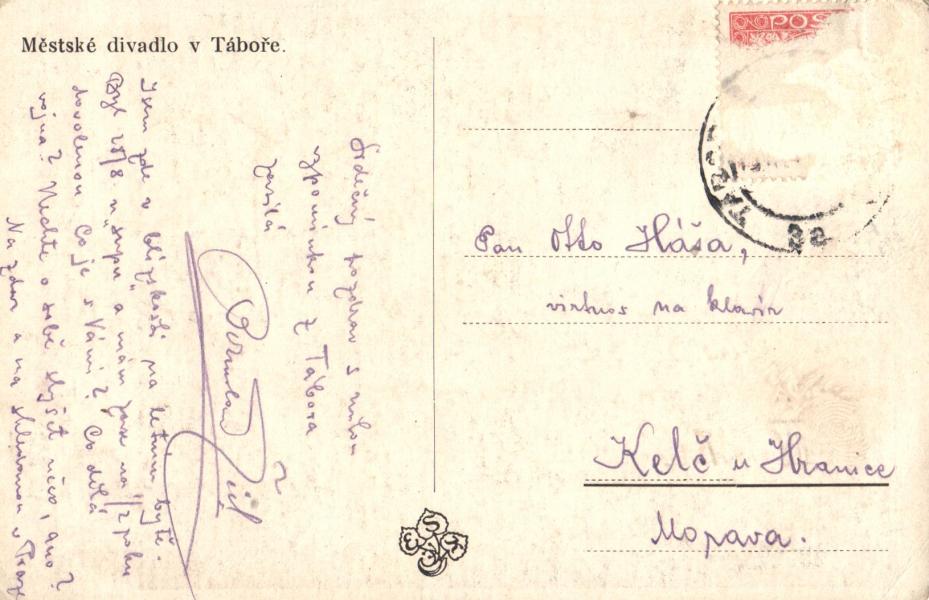 Městské divadlo v Táboře.
Srdečný pozdrav s milou
vzpomínkou z Tábora
zasílá
Jsem zde v blízkosti na letním bytě.
Byl 28/8. u a mám zase na 1/2 roku
dovolenou. Co je s Vámi? Co dělá
vojna? Nechte o sobě slyšet něco, ano?
Na zdar a na shledanou v Praze
Pan Otto Háša,
virtuos na klavír
Kelč u Hranice
Morava.